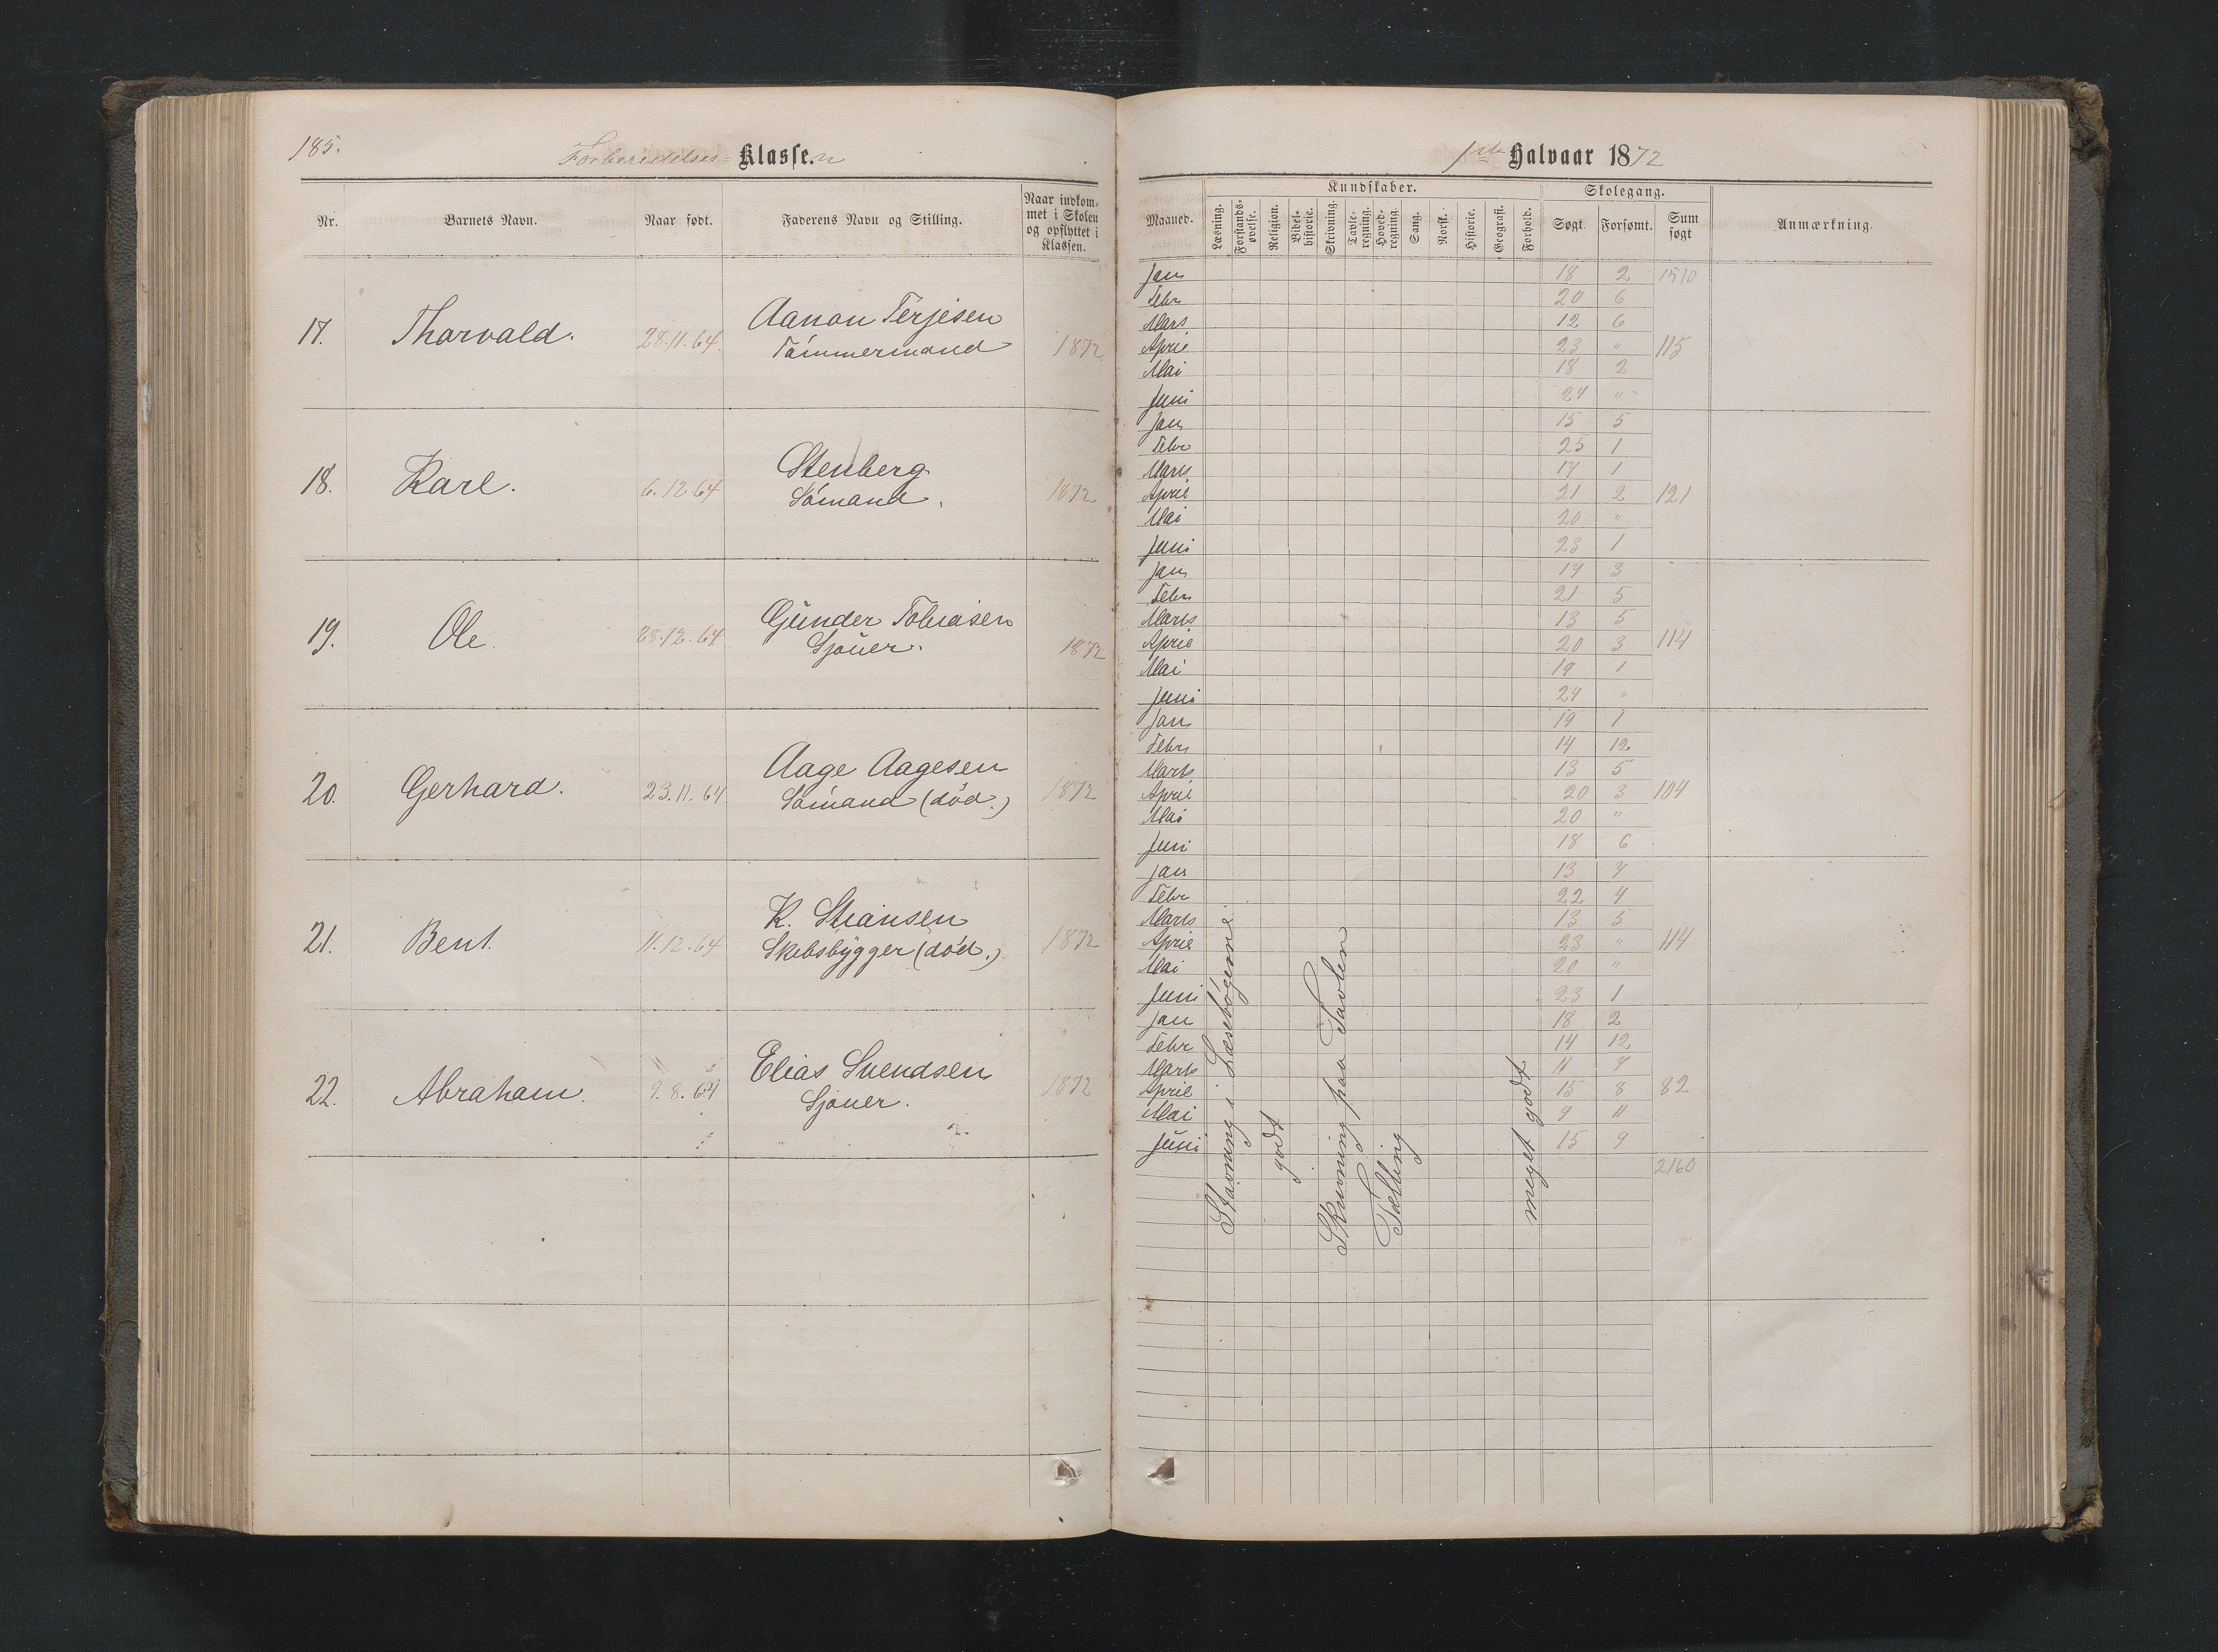 185.
Forberedelses-Klassen
Nr. Barnets Navn. Naar født. Faderens Navn og Stilling. Naar indkommet i Skolen og opflyttet i Klassen.
17. Thorvald. 28.11.64. Aanon Terjesen 1872
Tömmermand
18. Karl. 6.12.64 Stenberg 1872
Sömand.
19. Ole. 28.12.64 Gunder Tobiasen 1872
Sjöuer.
20. Gerhard. 23.11.64 Aage Aagesen 1872
Sömand (död.)
21. Bent. 11.12.64 K. Stiansen 1872
Skibsbygger (död.)
22. Abraham. 9.8.64 Elias Svendsen 1872
Sjouer.
1ste Halvaar 1872
Kundskaber. Skolegang.
Maaned. Læsning. Forstands-øvelse. Religion. Bibel-historie. Skrivning. Tavle-regning. Hoved-regning. Sang. Norsk. Historie. Geografi. Forhold. Søgt. Forsømt. Sum søgt Anmærkning.
Jan 18 2 1510
Febr 20 6
Mars 12 6
April 23 " 115
Mai 18 2
Juni 24 "
Jan 15 5
Febr 25 1
Marts 17 1
April 21 2 121
Mai 20 "
Juni 23 1
Jan 17 3
Febr 21 5
Marts 13 5
April 20 3 114
Mai 19 1
Juni 24 "
Jan 19 1
Febr 14 12
Marts 13 5
April 20 3 104
Mai 20 "
Juni 18 6
Jan 13 7
Febr 22 4
Marts 13 5
April 23 " 114
Mai 20 "
Juni 23 1
Jan 18 2
Febr 14 12
Marts 11 7
April 15 8 82
Mai 9 11
Juni 15 9
2160
Stavning i Læsebögerne
godt
Skrivning paa Tavlen
Tælling
meget godt